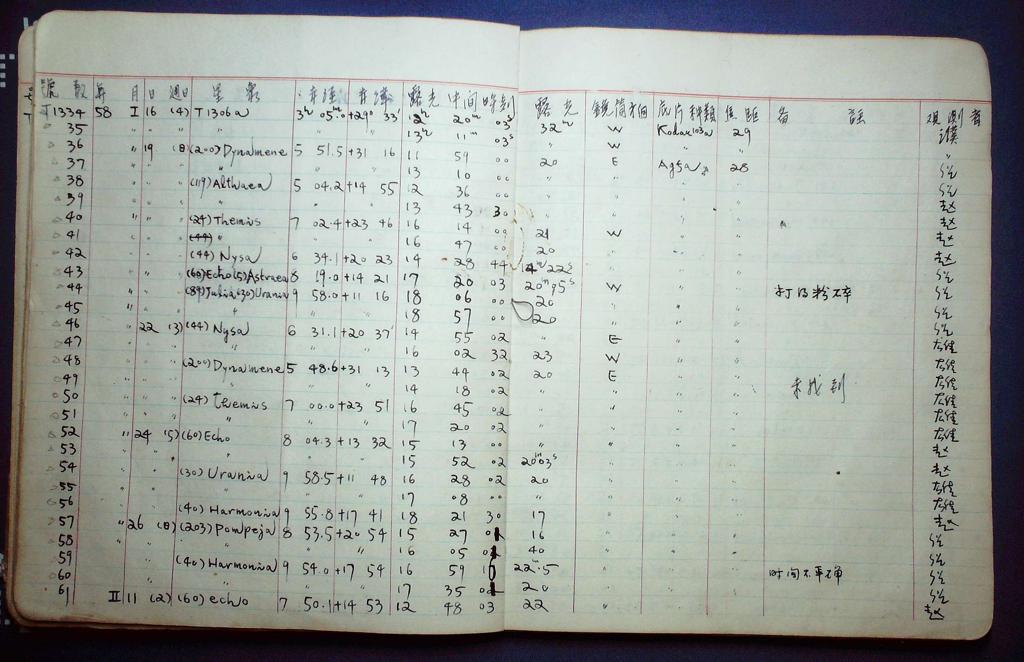 號數 年 月 日 週日 星象 赤經 赤緯 露光中間時刻 露光 鏡筒方向 底片種類 焦距 備註 觀測者
T1334 58 I 16 (4) T1306a 3h 05m.0 +29° 33' 12h 20m 03s 32m W Kodak103a 29
35 " " " " 13h 11m 03s " W " "
36 " 19 (日) (200) Dynamene 5 51.5 +31 16 11 59 00 20 E Agfa 28
37 " " " " 13 10 00 " " " "
38 " " " (119) Althaea 5 04.2 +14 55 12 36 00 " " " "
39 " " " " 13 43 30 " " " " 赵
40 " " " (24) Themis 7 02.4 +23 46 16 14 00 21 W " " 赵
41 " " " " 16 47 00 20 " " " 赵
42 " " " (44) Nysa 6 34.1 +20 23 14 28 44 14m22s " " "
43 " " " (60) Echo (5) Astraea 8 19.0 +14 21 17 20 03 20m05s W " "
44 " " " (89) Julia (30) Urania 9 58.0 +11 16 18 06 00 20 " " " 打的粉碎
45 " " " " 18 57 00 20 " " "
46 " 22 (3) (44) Nysa 6 31.1 +20 37 14 55 02 " E " "
47 " " " " 16 02 32 23 W " "
48 " " " (200) Dynamene 5 48.6 +31 13 13 44 02 20 E " "
49 " " " " 14 18 02 " " " " 未找到
50 " " " (24) Themis 7 00.0 +23 51 16 45 02 " " " "
51 " " " " 17 20 02 " " " "
52 " 24 (5) (60) Echo 8 04.3 +13 32 15 13 00 " " " " 赵
53 " " " " 15 52 02 20m03s " " " 赵
54 " " " (30) Urania 9 58.5 +11 48 16 28 02 20 " " "
55 " " " " 17 08 00 " " " "
56 " " " (40) Harmonia 9 55.8 +17 41 18 21 30 17 " " " 赵
57 " 26 (日) (203) Pompeja 8 53.5 +20 54 15 27 16 " " "
58 " " " " 16 05 40 " " "
59 " " " (40) Harmonia 9 54.0 +17 54 16 59 22.5 " " " 时间不準确
60 " " " " 17 35 20 " " "
61 II 11 (2) (60) echo 7 50.1 +14 53 12 48 03 22 " " " 赵